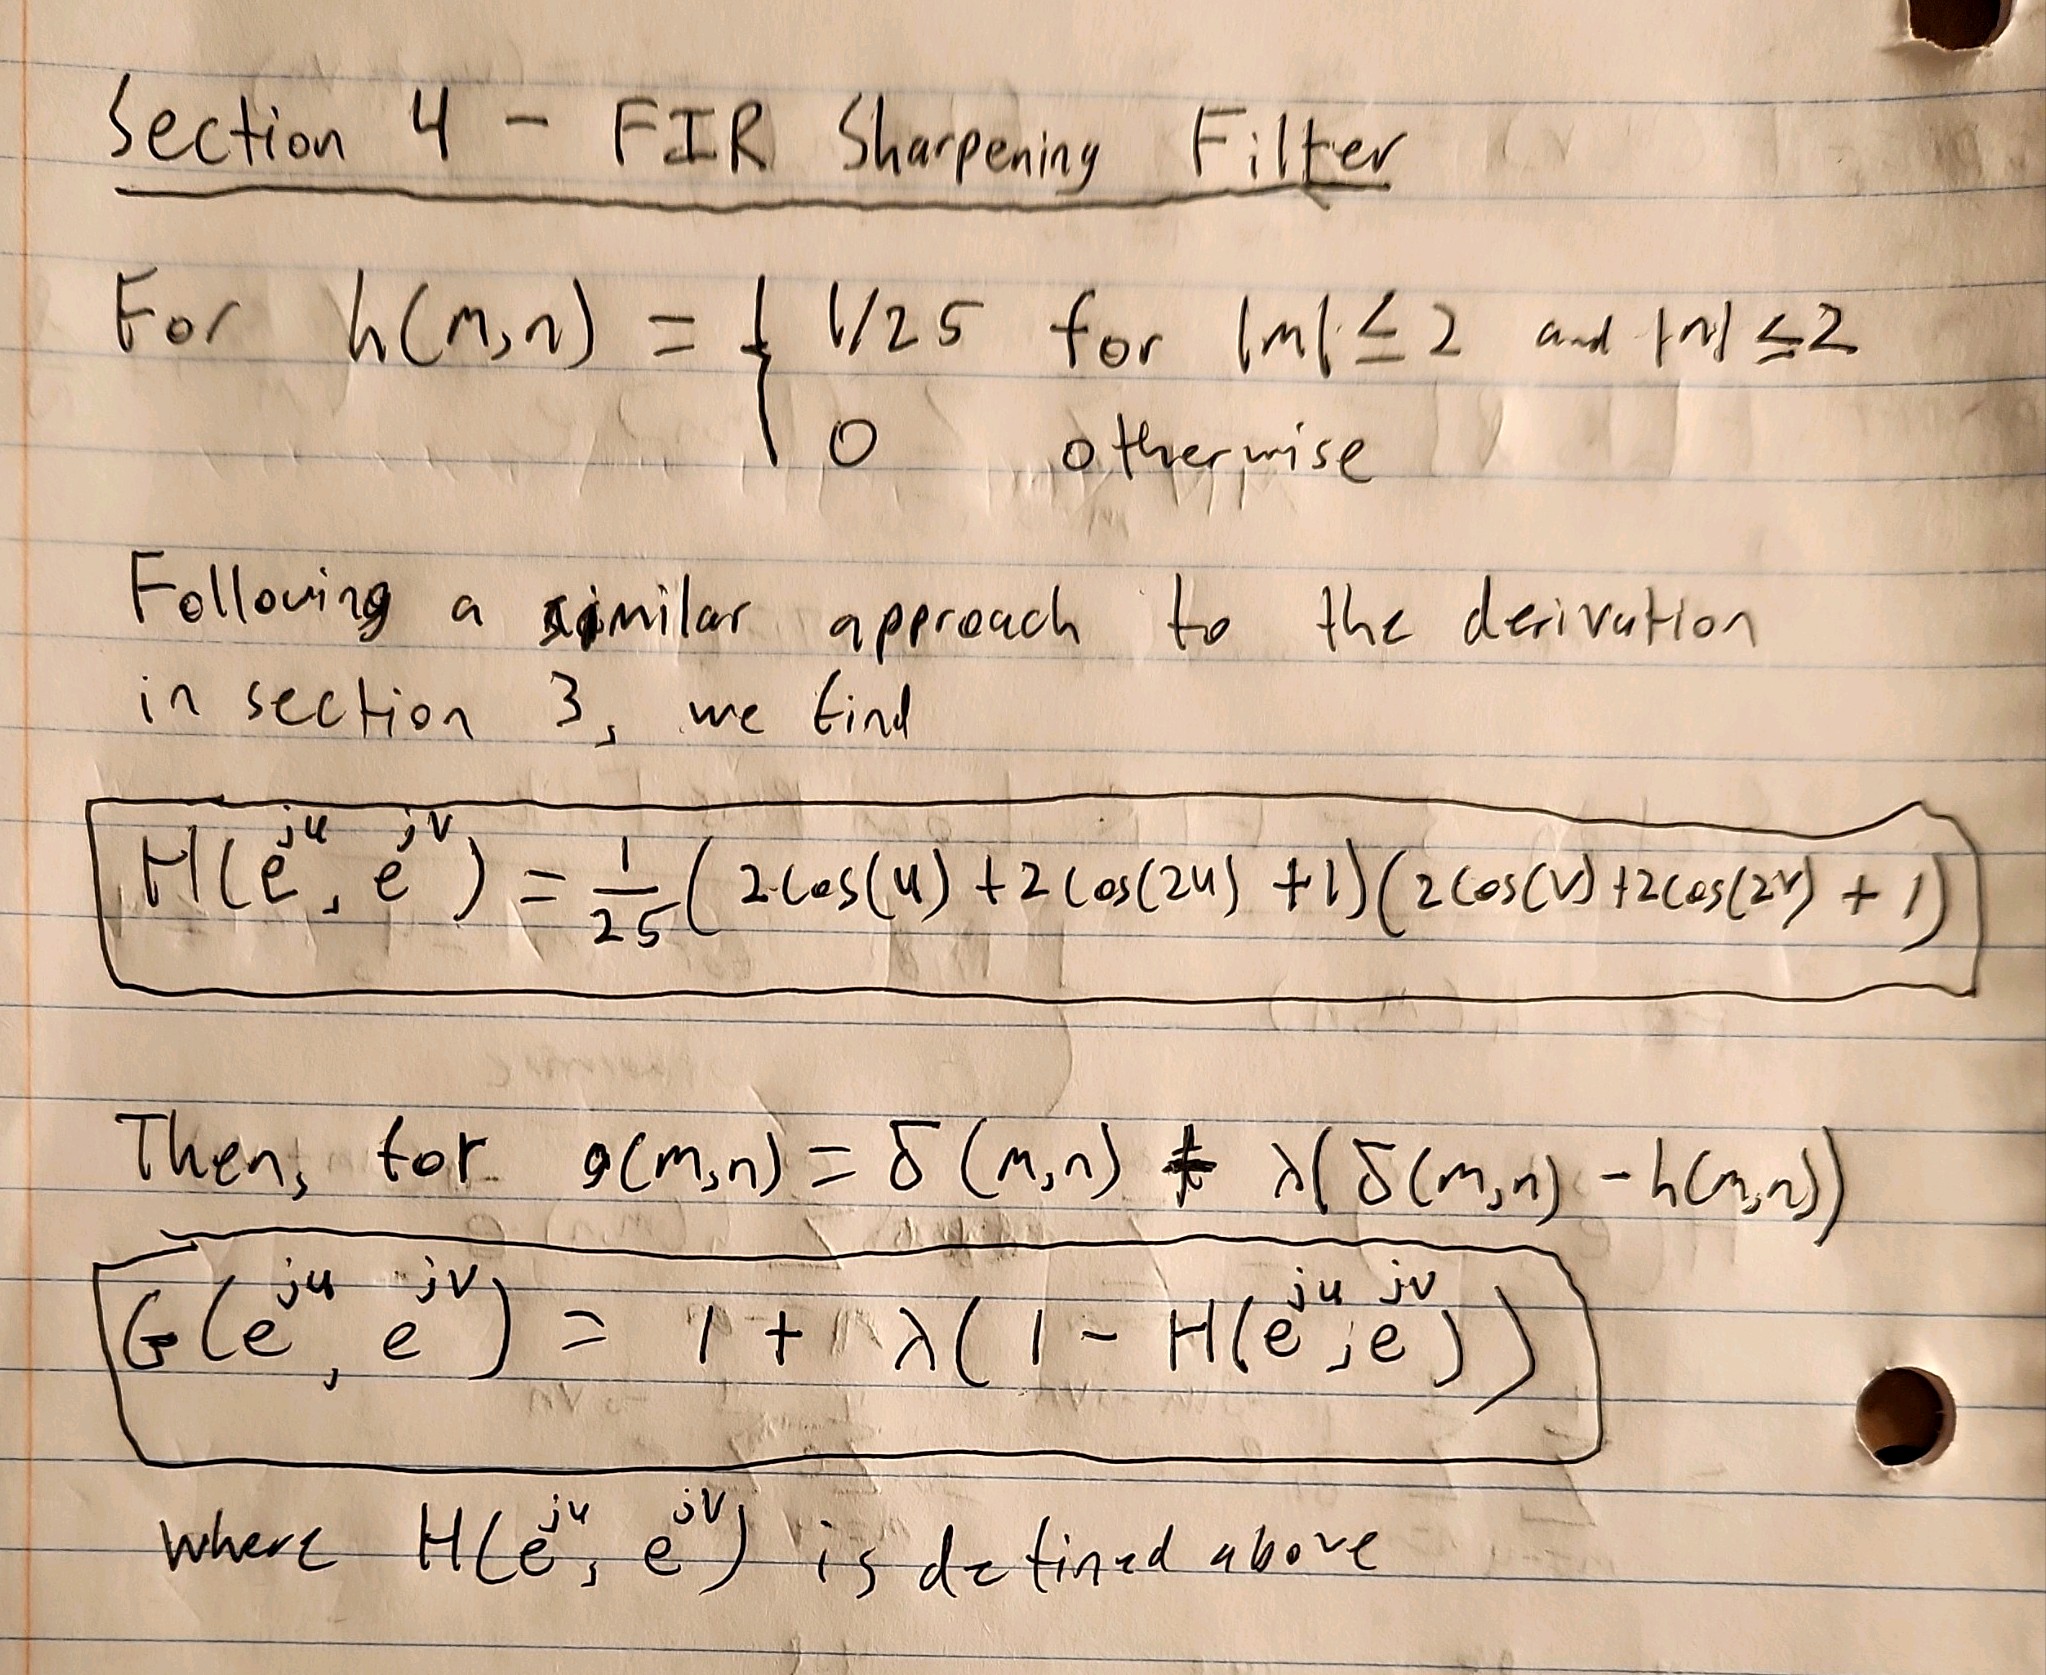 Section 4 - FIR Sharpening Filter
For h(m,n) = { 1/25 for |m| ≤ 2 and |n| ≤ 2
0 otherwise
Following a similar approach to the derivation
in section 3, we find
H(e^{ju}, e^{jv}) = 1/25 (2cos(u) + 2cos(2u) + 1)(2cos(v) + 2cos(2v) + 1)
Then, for g(m,n) = δ(m,n) + λ(δ(m,n) - h(m,n))
G(e^{ju}, e^{jv}) = 1 + λ(1 - H(e^{ju}, e^{jv}))
where H(e^{ju}, e^{jv}) is defined above